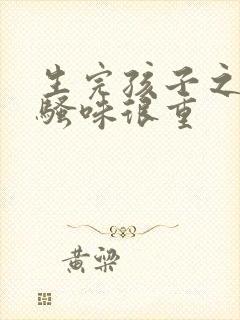 生完孩子之
骚味很重
黄梁